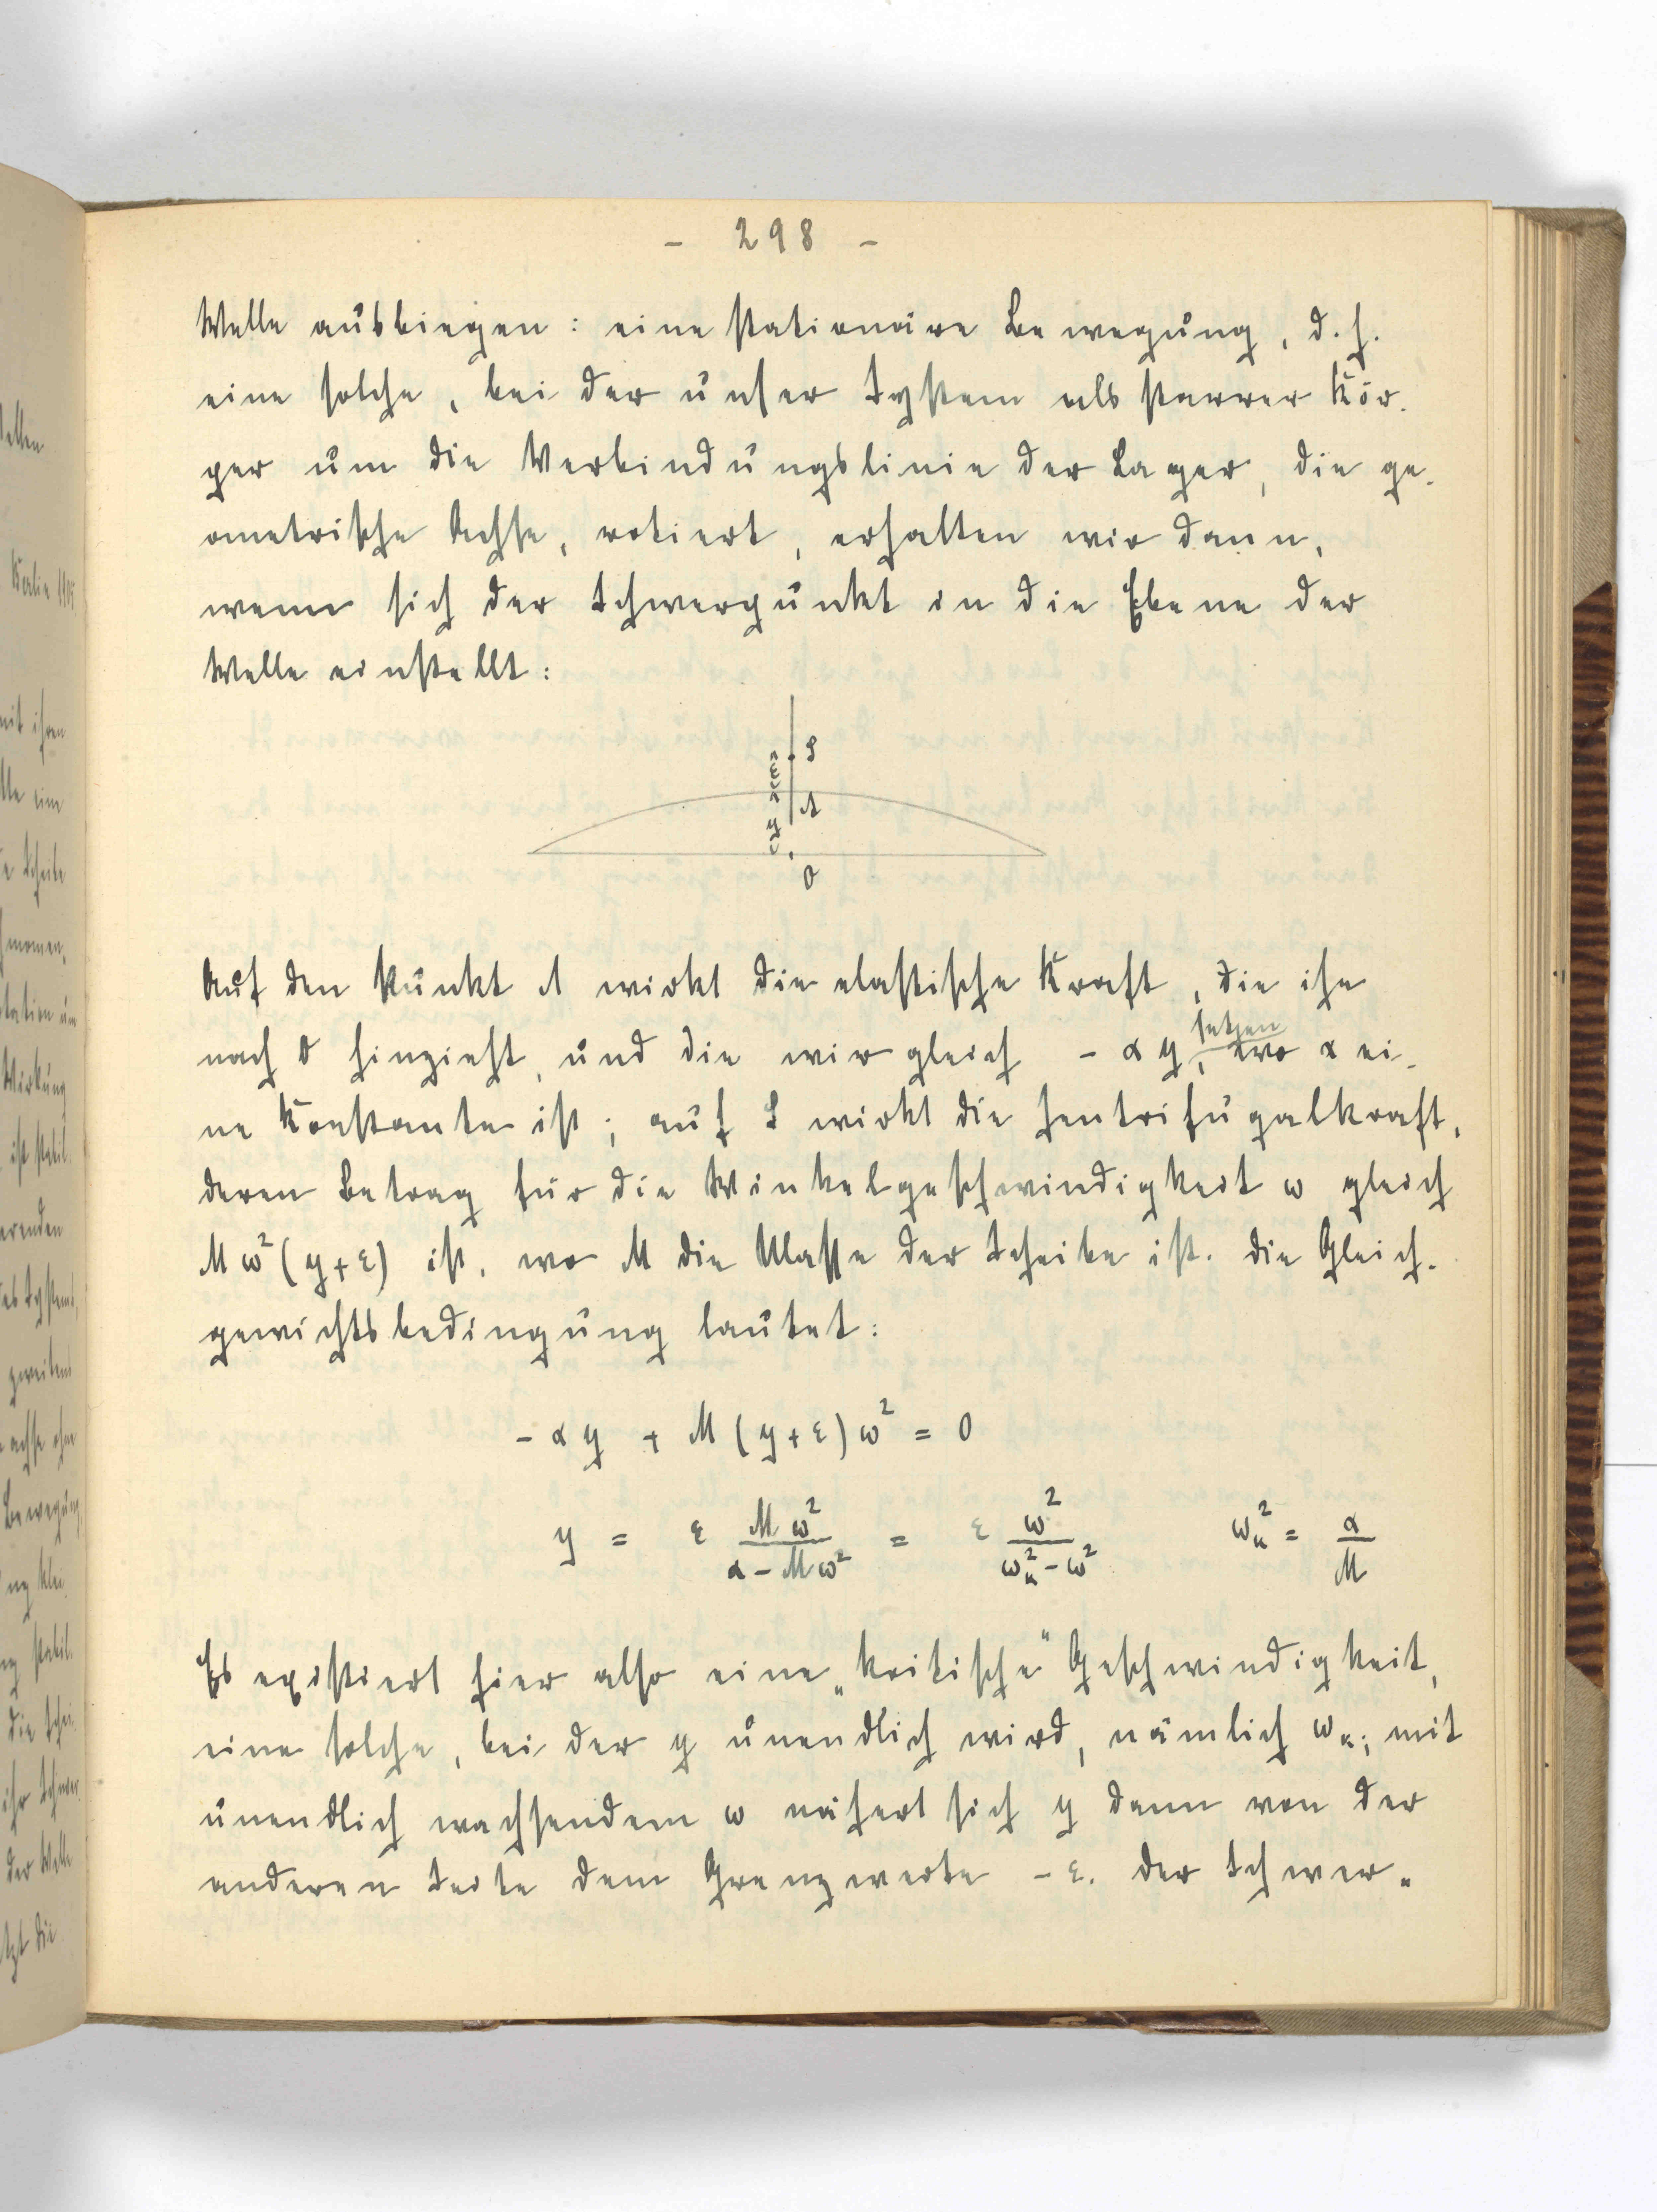 - 298 -
Welle ausbiegen: eine stationäre Bewegung, d.h.
eine solche, bei der unser System als starrer Kör-
per um die Verbindungslinie der Lager, die ge-
ometrische Achse, rotiert, erhalten wir dann,
wenn sich der Schwerpunkt in die Ebene der
Welle einstellt:
S
ε
A
y
O
Auf den Punkt A wirkt die elastische Kraft, die ihn
nach O hinzieht, und die wir gleich - αy setzen, wo α ei-
ne Konstante ist; auf S wirkt die Zentrifugalkraft,
deren Betrag für die Winkelgeschwindigkeit ω gleich
Mω²(y+ε) ist, wo M die Masse der Scheibe ist. Die Gleich-
gewichtsbedingung lautet:
- αy + M(y+ε)ω² = 0
y = ε Mω²/(α-Mω²) = ε ω²/(ωₖ²-ω²) ωₖ² = α/M
Es existiert hier also eine „kritische" Geschwindigkeit,
eine solche, bei der y unendlich wird, nämlich ωₖ; mit
unendlich wachsendem ω nähert sich y dann von der
anderen Seite dem Grenzwerte -ε. Der Schwer-